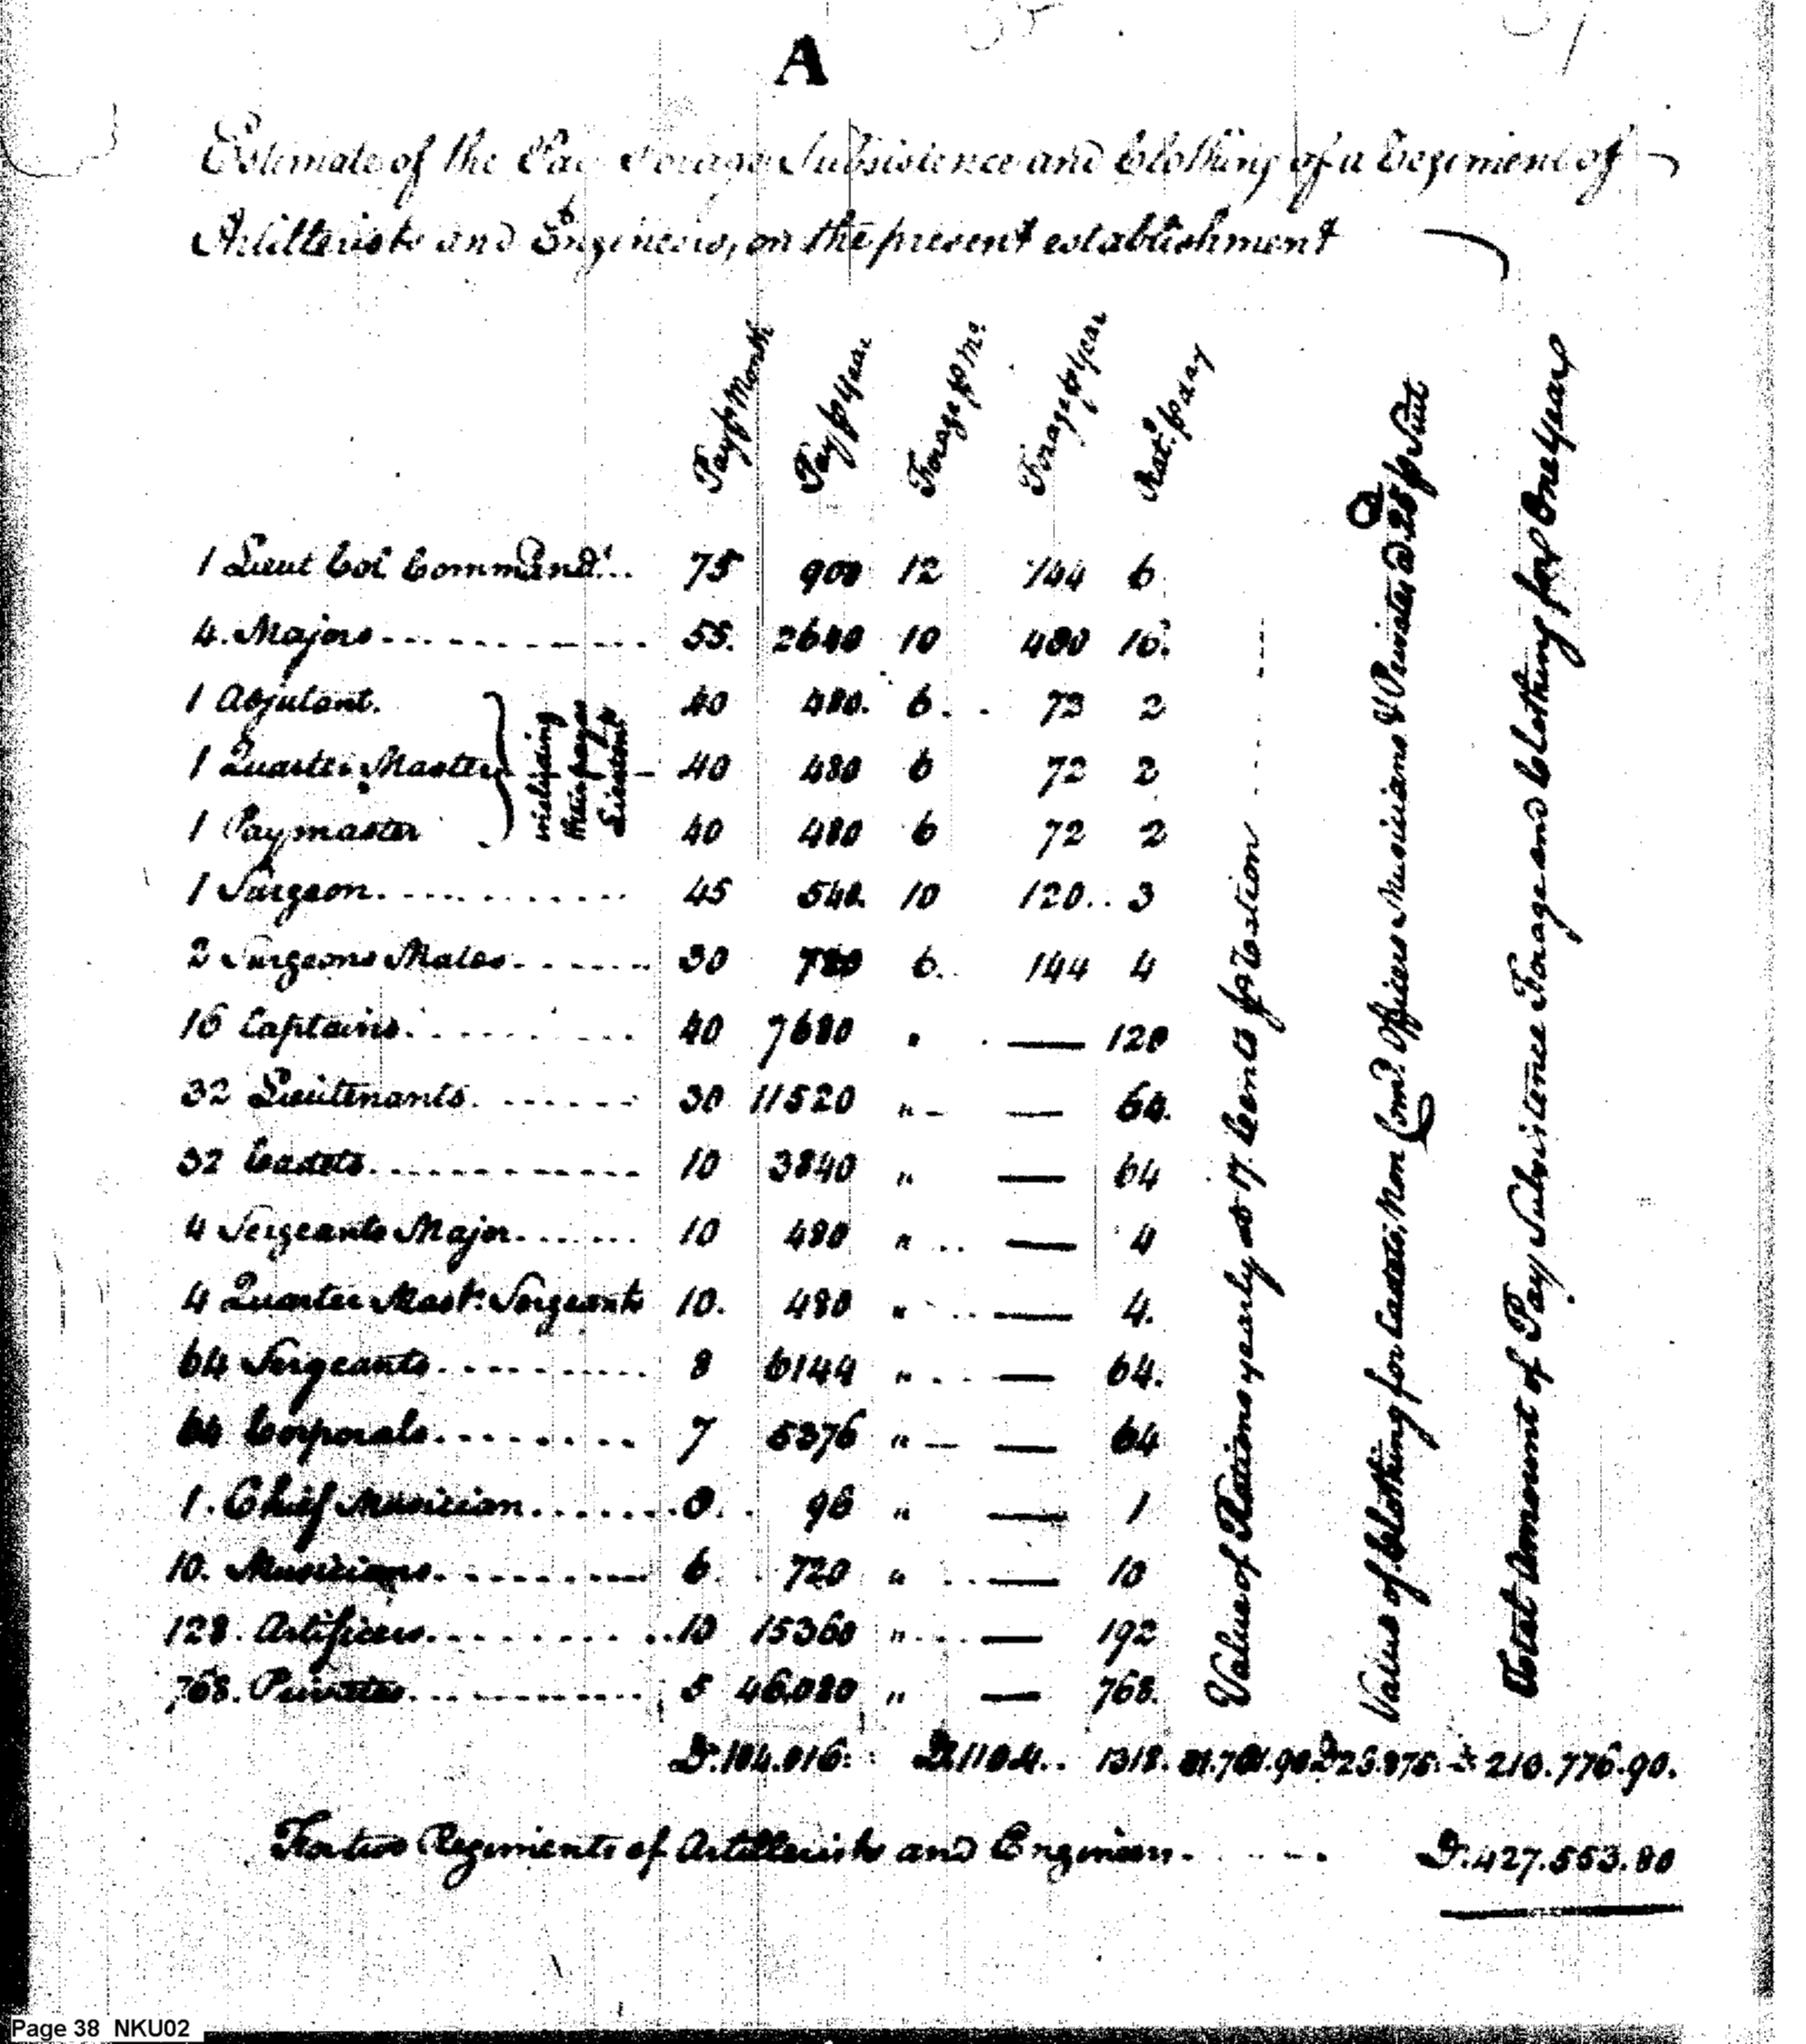 A
Estimate of the Pay Forage Subsistence and Clothing of a Regiment of
Artillerists and Engineers, on the present establishment
Pay p Month Pay p Year Forage p Mo Forage p Year Rats. p day
Value of Rations yearly at 17 Cents p Ration
Value of Clothing for Cadets, Non Comd. Officers Musicians & Privates @ 25 p Suit
Total Amount of Pay Subsistence Forage and Clothing for One Year
1 Lieut Col Commandt. 75 900 12 144 6
4. Majors 55. 2640 10 480 16.
1 Adjutant. 40 480. 6. 72 2
1 Quarter Master 40 480 6 72 2
1 Paymaster 40 480 6 72 2
including their pay as Lieutents
1 Surgeon 45 540. 10 120 3
2 Surgeons Mates 30 720 6. 144 4
16 Captains 40 7680 " — 120
32 Lieutenants 30 11520 " — 64.
32 Cadets 10 3840 " — 64
4 Sergeants Major 10 480 " — 4
4 Quarter Mastr. Sergeants 10. 480 " — 4.
64 Sergeants 8 6144 " — 64.
64 Corporals 7 5376 " — 64
1. Chief Musician 8. 96 " — 1
10. Musicians 6 720 " — 10
128. Artificers 10 15360 " — 192
768. Privates 5 46.080 " — 768.
Dr. 104.016. D 1104. 1318. 81.781.90 D 23.875. 210.776.90.
For two Regiments of Artillerists and Engineers Dr. 427.553.80
Page 38 NKU02